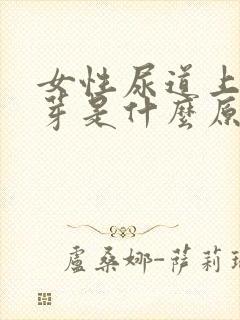 女性尿道上
芽是什麼原
盧桑娜-薩莉